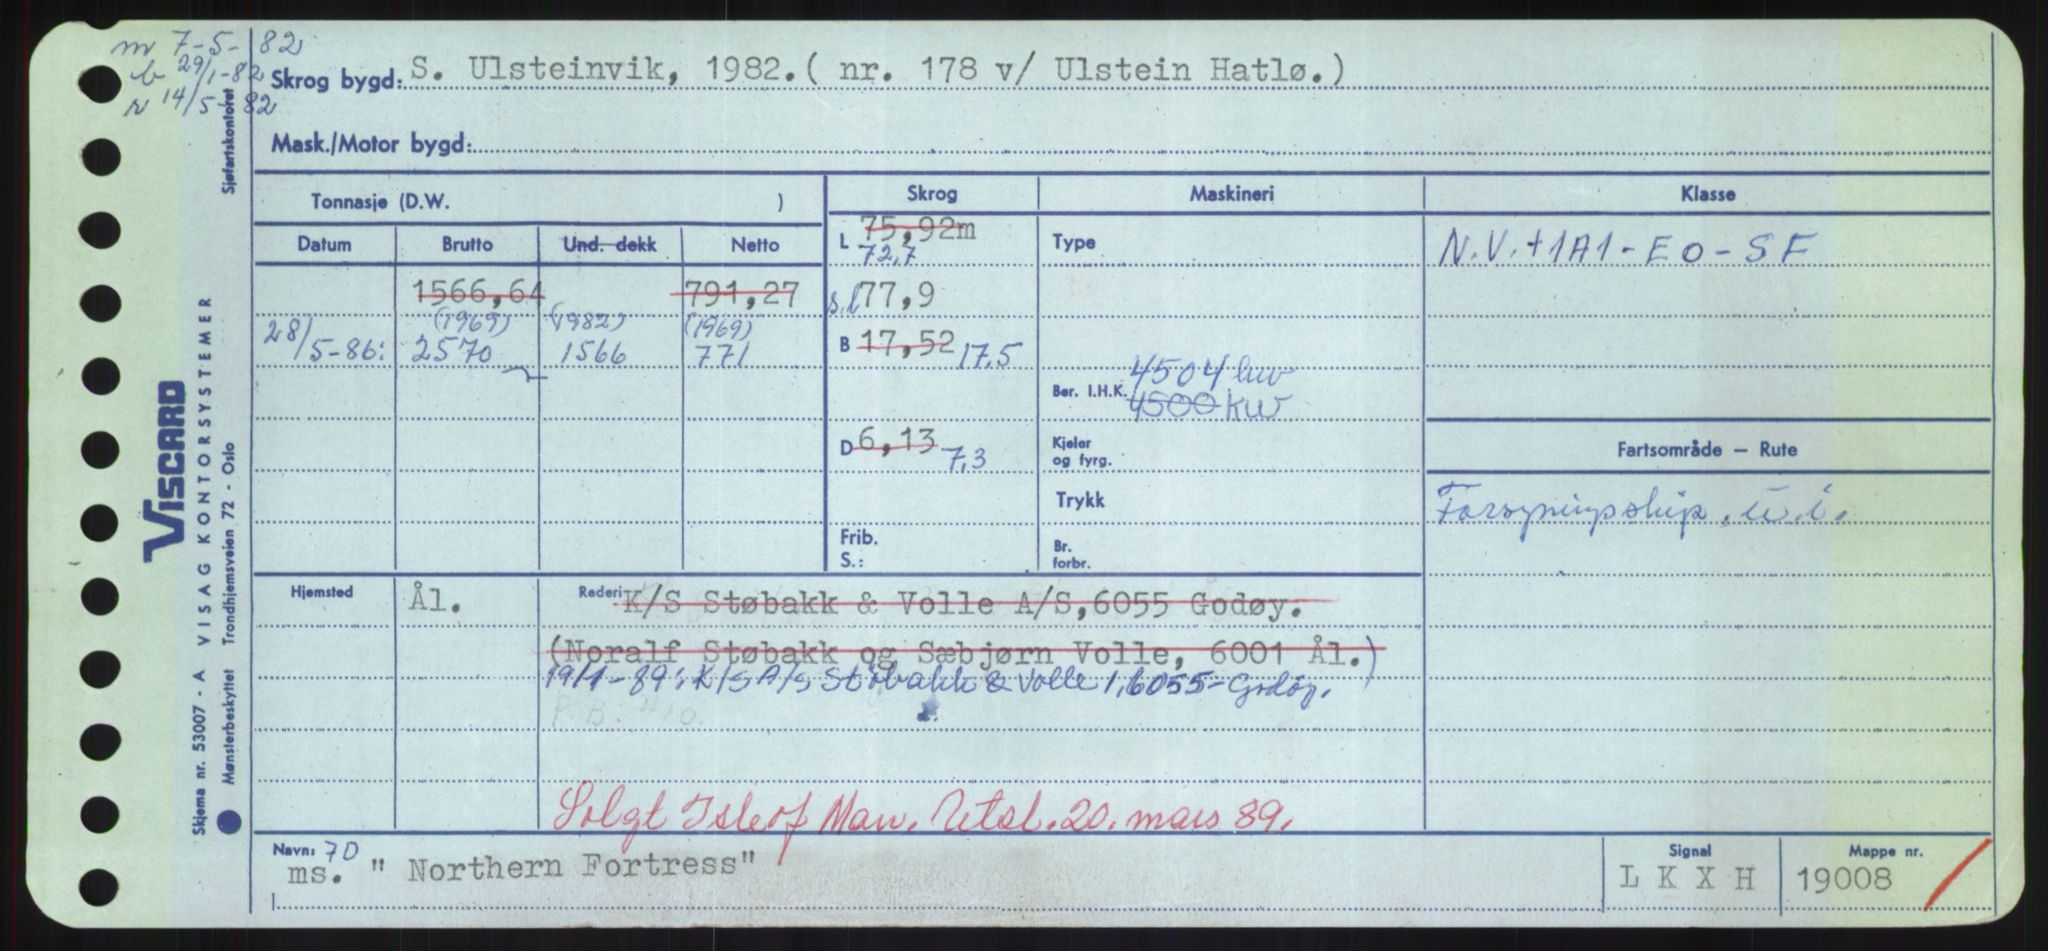 m 7-5-82
b 29/1-82
r 14/5-82
Skrog bygd: S. Ulsteinvik, 1982. ( nr. 178 v/ Ulstein Hatlø.)
Mask./Motor bygd:
Tonnasje (D.W. )
Skrog
Maskineri
Klasse
Datum
Brutto
Und. dekk
Netto
L 75,92m
72,7
Type
N.V.+1A1-EO-SF
1566,64
791,27
s.l 77,9
(1969) (1982) (1969)
28/5-86: 2570 1566 771
B 17,52 17,5
Ber. I.H.K. 4504 kw
4500 kw
D 6,13 7,3
Kjeler
og fyrg.
Fartsområde — Rute
Trykk
Forsyningsskip. u.i.
Frib.
S.:
Br.
forbr.
Hjemsted
Ål.
Rederi K/S Støbakk & Volle A/S, 6055 Godøy.
(Noralf Støbakk og Sæbjørn Volle, 6001 Ål.)
19/1-89: K/S A/S Støbakk & Volle 1, 6055-Godøy.
P.B. 410.
Solgt Isle of Man. Utsl. 20. mars 89.
Navn: 70
ms. " Northern Fortress"
Signal
L K X H
Mappe nr.
19008
VISCARD
Skjema nr. 53007 - A VISAG KONTORSYSTEMER Sjøfartskontoret
Mønsterbeskyttet Trondhjemsveien 72 - Oslo